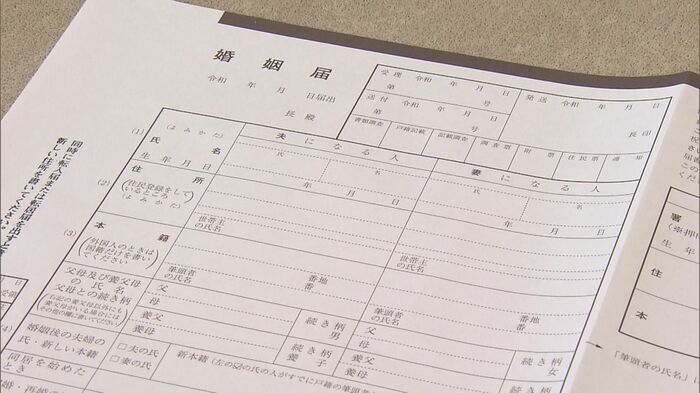 婚姻届
令和 年 月 日届出
長 殿
受理 令和 年 月 日
第 号
送付 令和 年 月 日
第 号
発送 令和 年 月 日
長 印
書類調査 戸籍記載 記載調査 調査票 附票 住民票 通知
(1)
(よみかた)
氏 名
生年月日
夫になる人
氏 名
年 月 日
妻になる人
氏 名
年 月 日
(2)
住所
(住民登録をして
いるところ)
(よみかた)
世帯主
の氏名
世帯主
の氏名
(3)
本籍
(外国人のときは
国籍だけを書い
てください)
番地
番
筆頭者
の氏名
番地
番
筆頭者
の氏名
父母及び養父母
の氏名
父母との続き柄
(右記の養父母以外にも
養父母がいる場合には
その他の欄に書いてください)
父
母
続き柄
男
父
母
続き柄
女
養父
養母
続き柄
養子
養父
養母
続き柄
婚姻後の夫婦の
氏・新しい本籍
□夫の氏
□妻の氏
新本籍(左の☑の氏の人がすでに戸籍の筆頭者
同居を始めた
とき
同時に転入届または転居届を出すとき
新しい住所を書いてください。
署
(※押印
生年
住
本
「筆頭者の氏名」